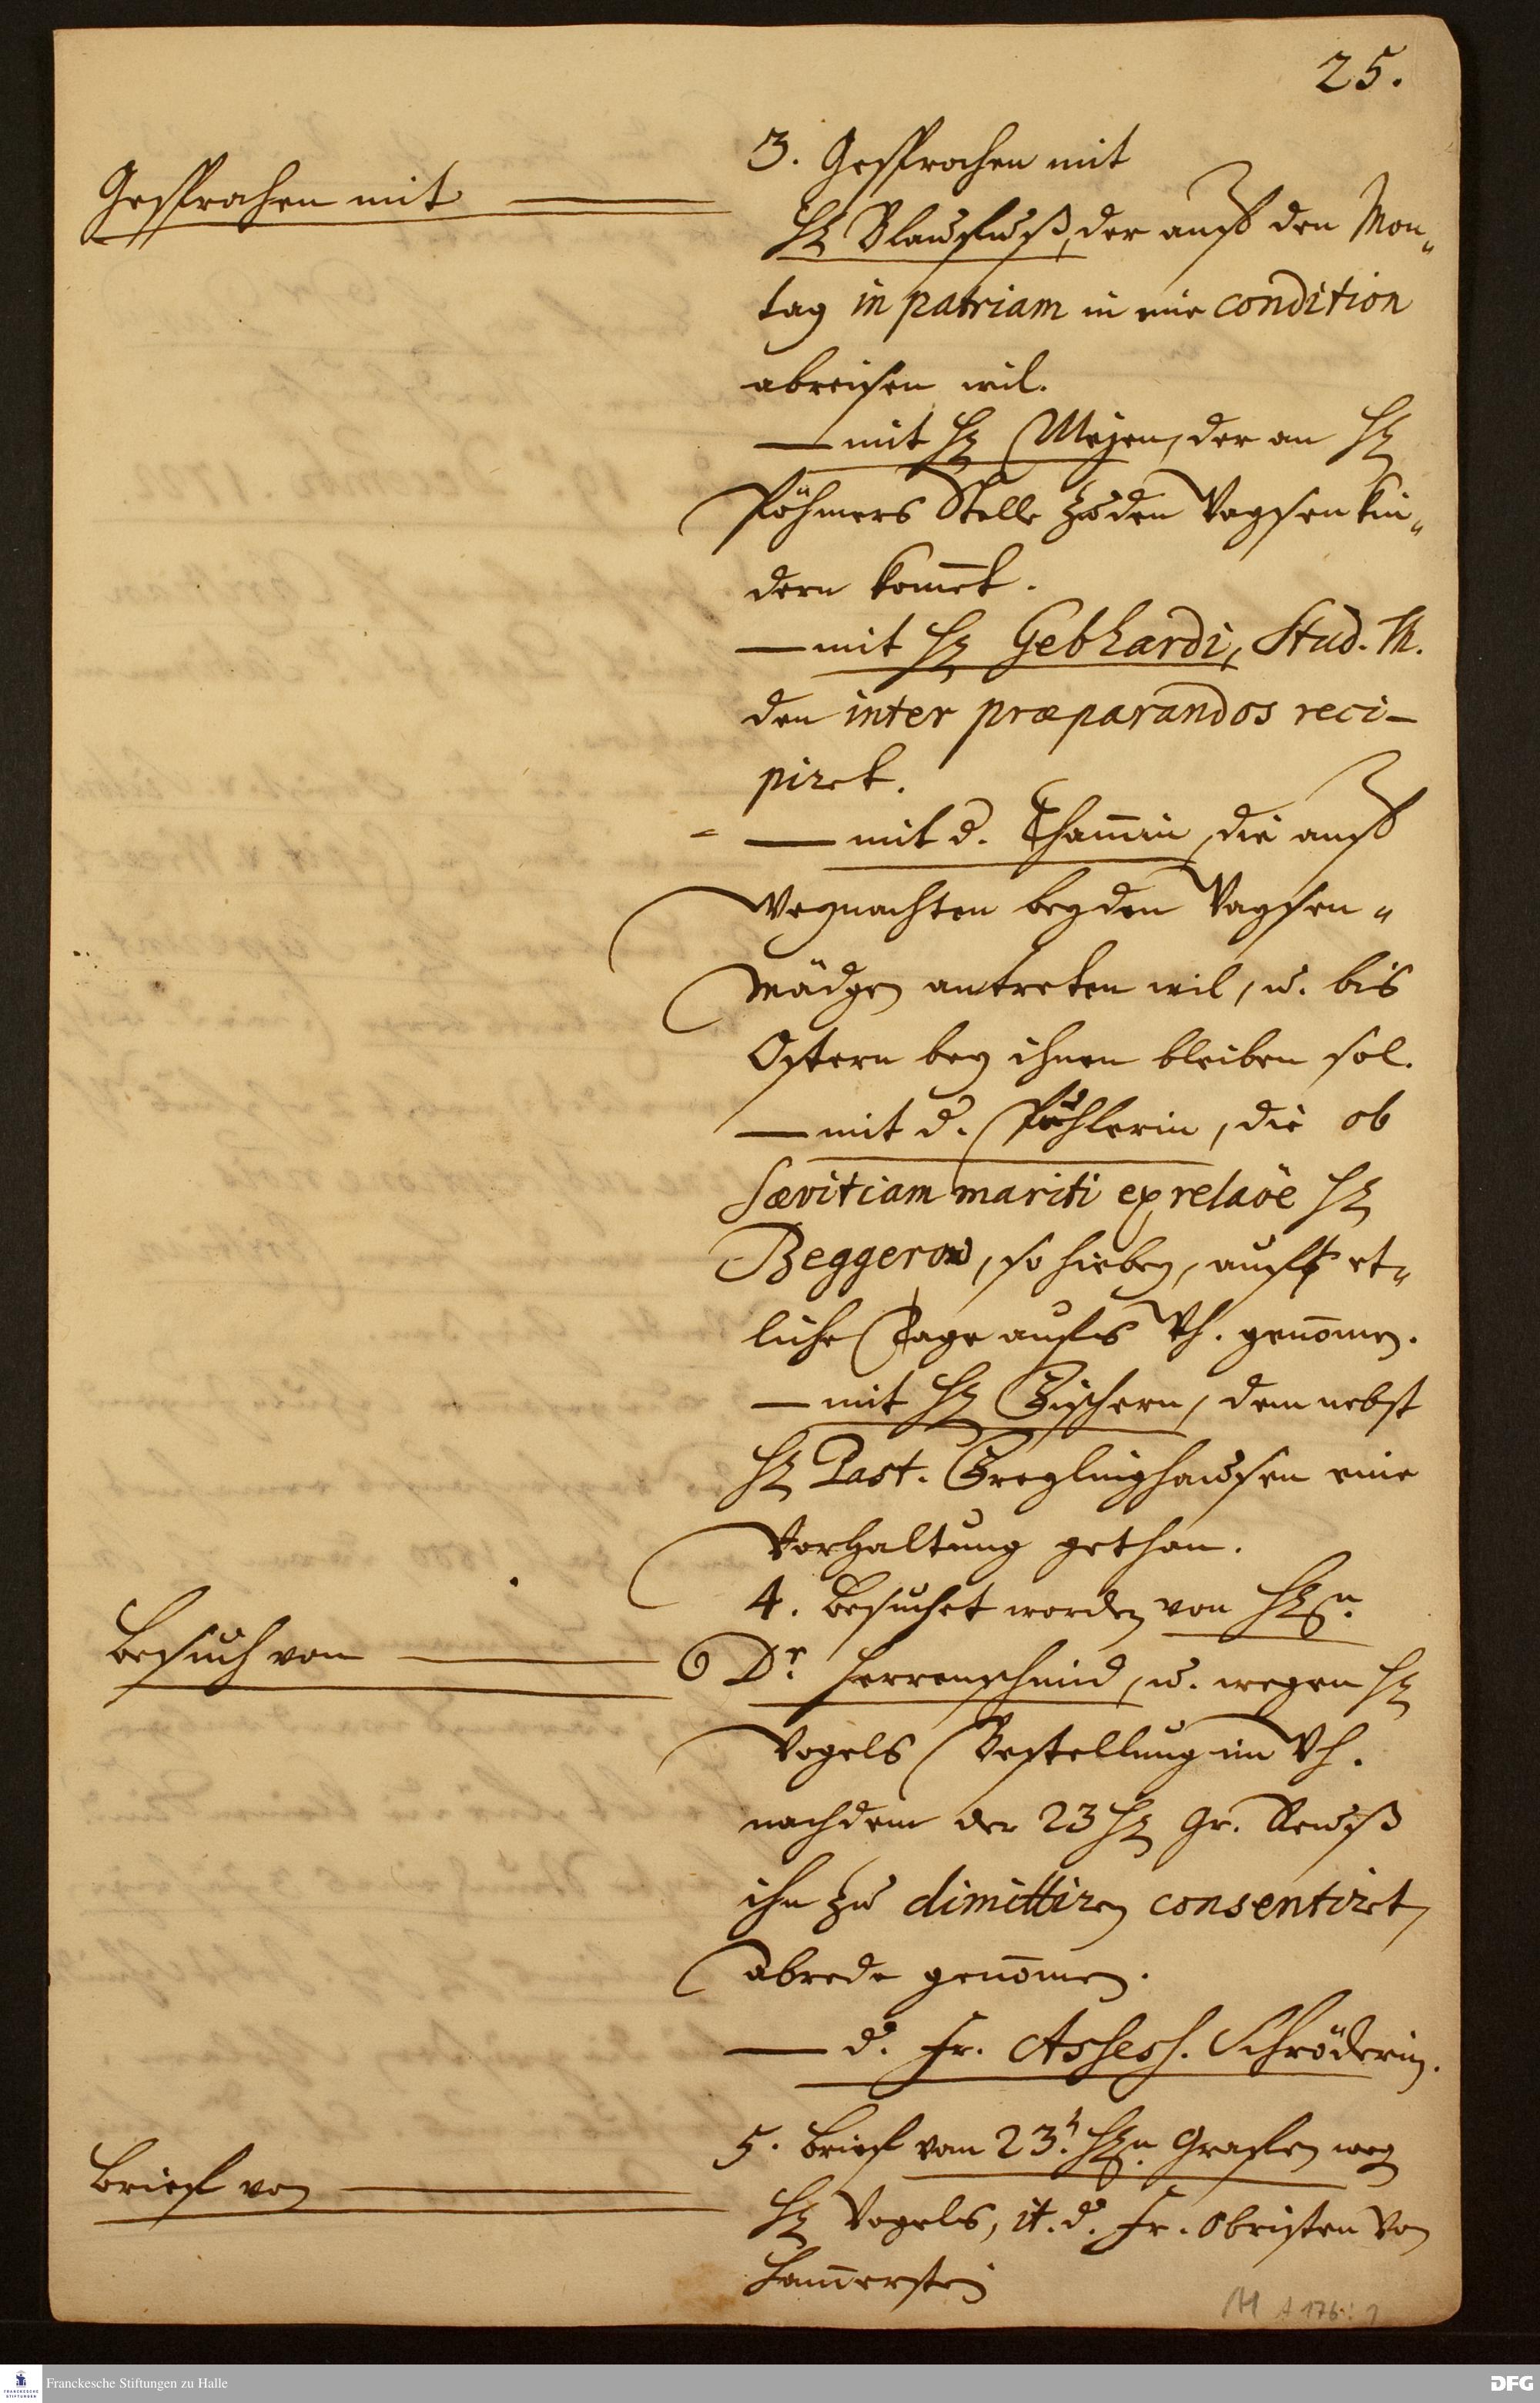 25.
Gesprochen mit
3. Gesprochen mit
H. Blaufuß, der auff den Mon„
tag in patriam in eine condition
abreisen wil.
— mit H. Meyen, der an H.
Böhmers Stelle zu den Waysenkin„
dern komt.
— mit H. Gebhardi, Stud. Th.
den inter præparandos reci-
piret.
— mit d. Thamin, die auff
Weynachten bey den Waysen„
Mädgen antreten wil, u. bis
Ostern bey ihnen bleiben sol.
— mit d. Pühlerin, die ob
sævitiam mariti ex relaõe H.
Beggerow, so hiebey, auff et„
liche Tage aufs Wh. genomen.
— mit H. Zischern, dem nebst
H. Past. Greglinghausen eine
Vorhaltung gethan.
Besuch von
4. Besuchet worden von H.n
Dr. Herrenschmid, u. wegen H.
Vogels Bestellung im Wh.
nachdem der 23 H. Gr. Reuß
ihn zu dimittiren consentiret,
abrede genomen.
— d. Fr. Assess. Schröderin.
Brief von
5. Brief vom 23t. H.n Grafen weg
H. Vogels, it. d. Fr. Obristen von
Hamerstein
A 176: 1
Franckesche Stiftungen zu Halle
DFG